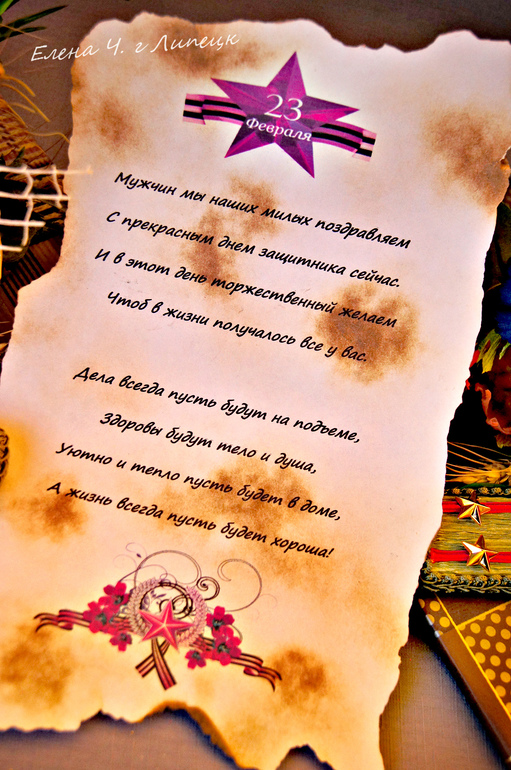 Елена Ч. г Липецк
23
февраля
Мужчин мы наших милых поздравляем
С прекрасным днем защитника сейчас.
И в этот день торжественный желаем
Чтоб в жизни получалось все у вас.
Дела всегда пусть будут на подъеме,
Здоровы будут тело и душа,
Уютно и тепло пусть будет в доме,
А жизнь всегда пусть будет хороша!